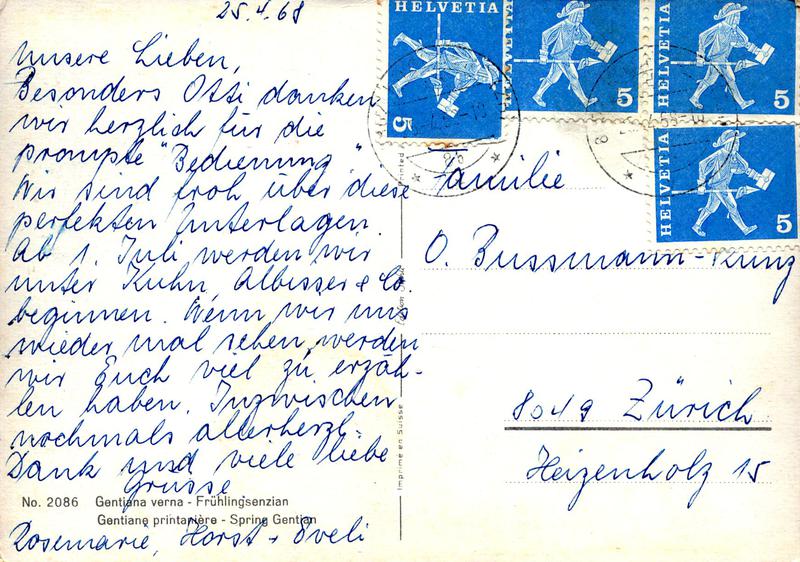 25.4.68
Unsere Lieben,
Besonders Otti danken
wir herzlich für die
prompte "Bedienung".
Wir sind froh über diese
perfekten Unterlagen.
Ab 1. Juli werden wir
unter Kuhn, Albisser & Co.
beginnen. Wenn wir uns
wieder mal sehen, werden
wir Euch viel zu erzäh-
len haben. Inzwischen
nochmals allerherzl.
Dank und viele liebe
Grüsse
Rosemarie, Horst + Eveli
No. 2086 Gentiana verna - Frühlingsenzian
Gentiane printanière - Spring Gentian
Imprimé en Suisse
Printed
HELVETIA 5
HELVETIA 5
HELVETIA 5
HELVETIA 5
Familie
O. Bussmann-Kunz
8049 Zürich
Heizenholz 15